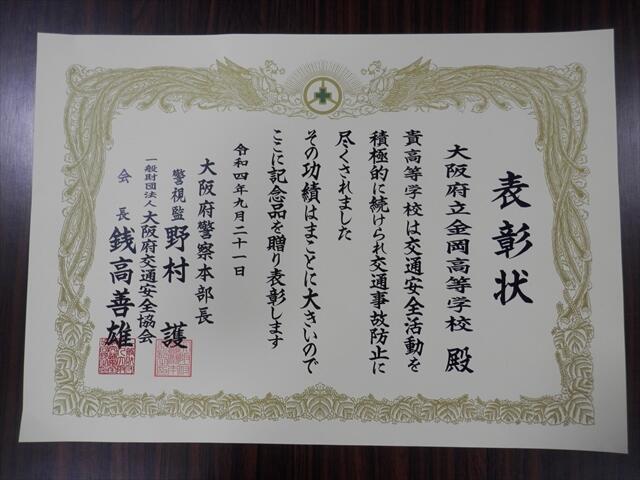 表彰状
大阪府立金岡高等学校 殿
貴高等学校は交通安全活動を
積極的に続けられ交通事故防止に
尽くされました
その功績はまことに大きいので
ここに記念品を贈り表彰します
令和四年九月二十一日
大阪府警察本部長
警視監 野村 護
一般財団法人 大阪府交通安全協会
会長 銭高善雄